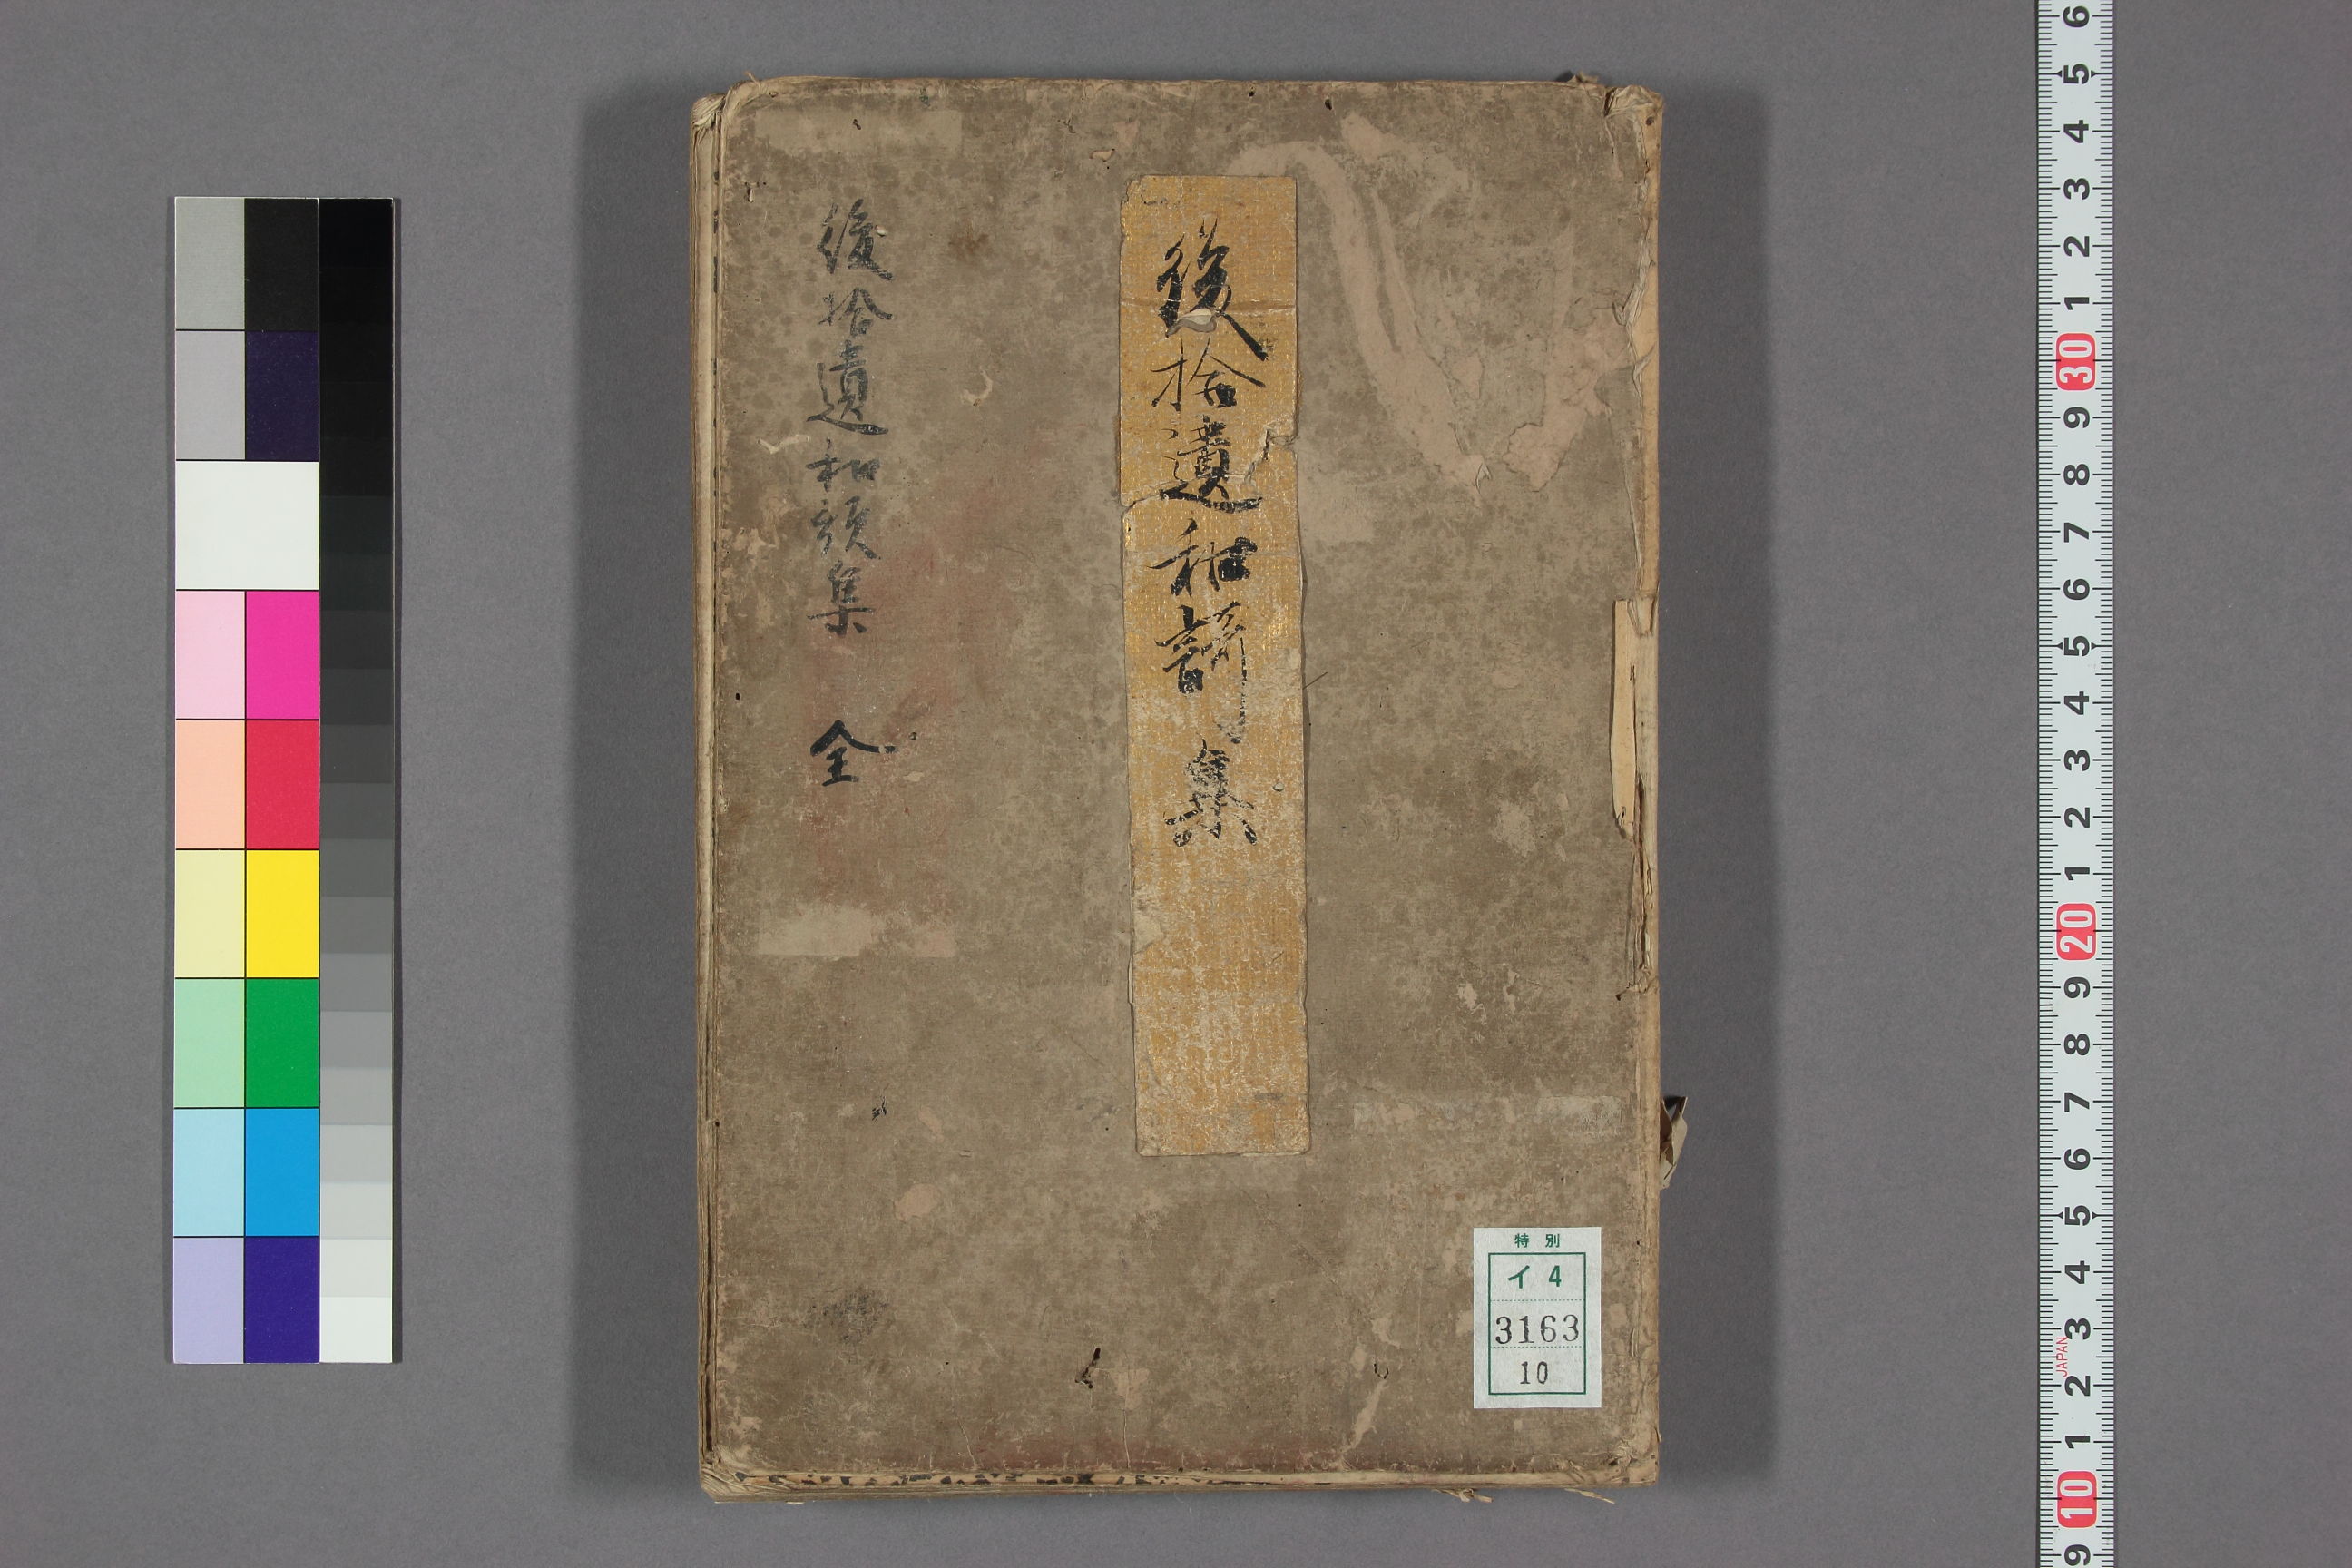 後拾遺和謌集
後拾遺和歌集 全
特別
イ 4
3163
10
6 5 4 3 2 1 30 9 8 7 6 5 4 3 2 1 20 9 8 7 6 5 4 3 2 1 10 9
JAPAN